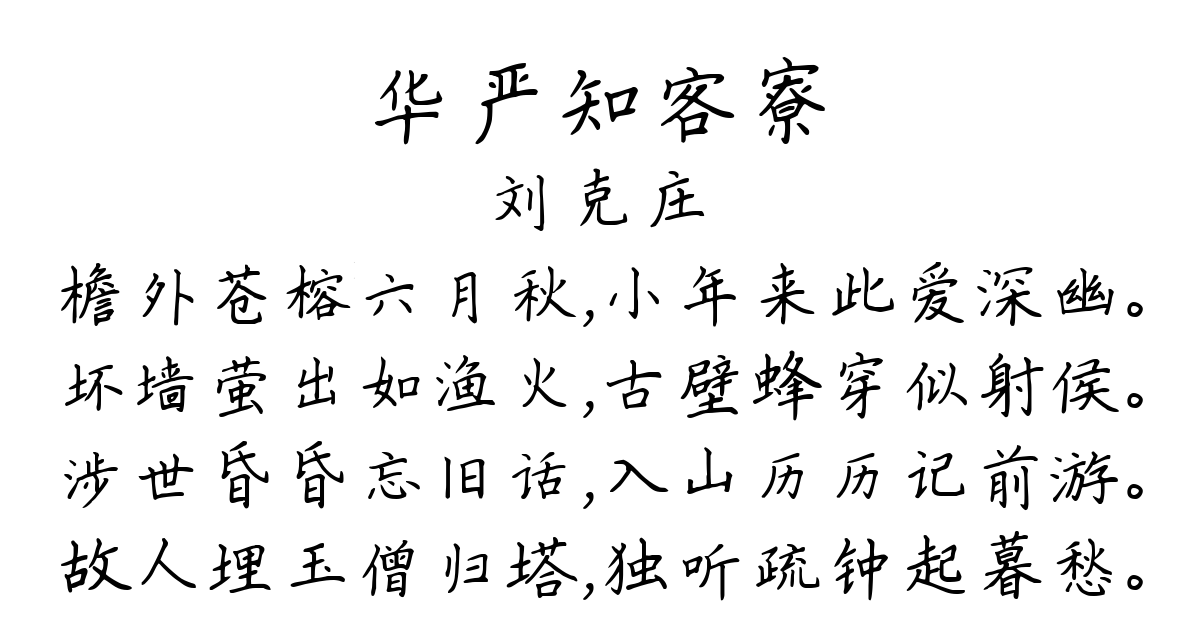 华严知客寮
刘克庄
檐外苍榕六月秋,小年来此爱深幽。
坏墙萤出如渔火,古壁蜂穿似射侯。
涉世昏昏忘旧话,入山历历记前游。
故人埋玉僧归塔,独听疏钟起暮愁。